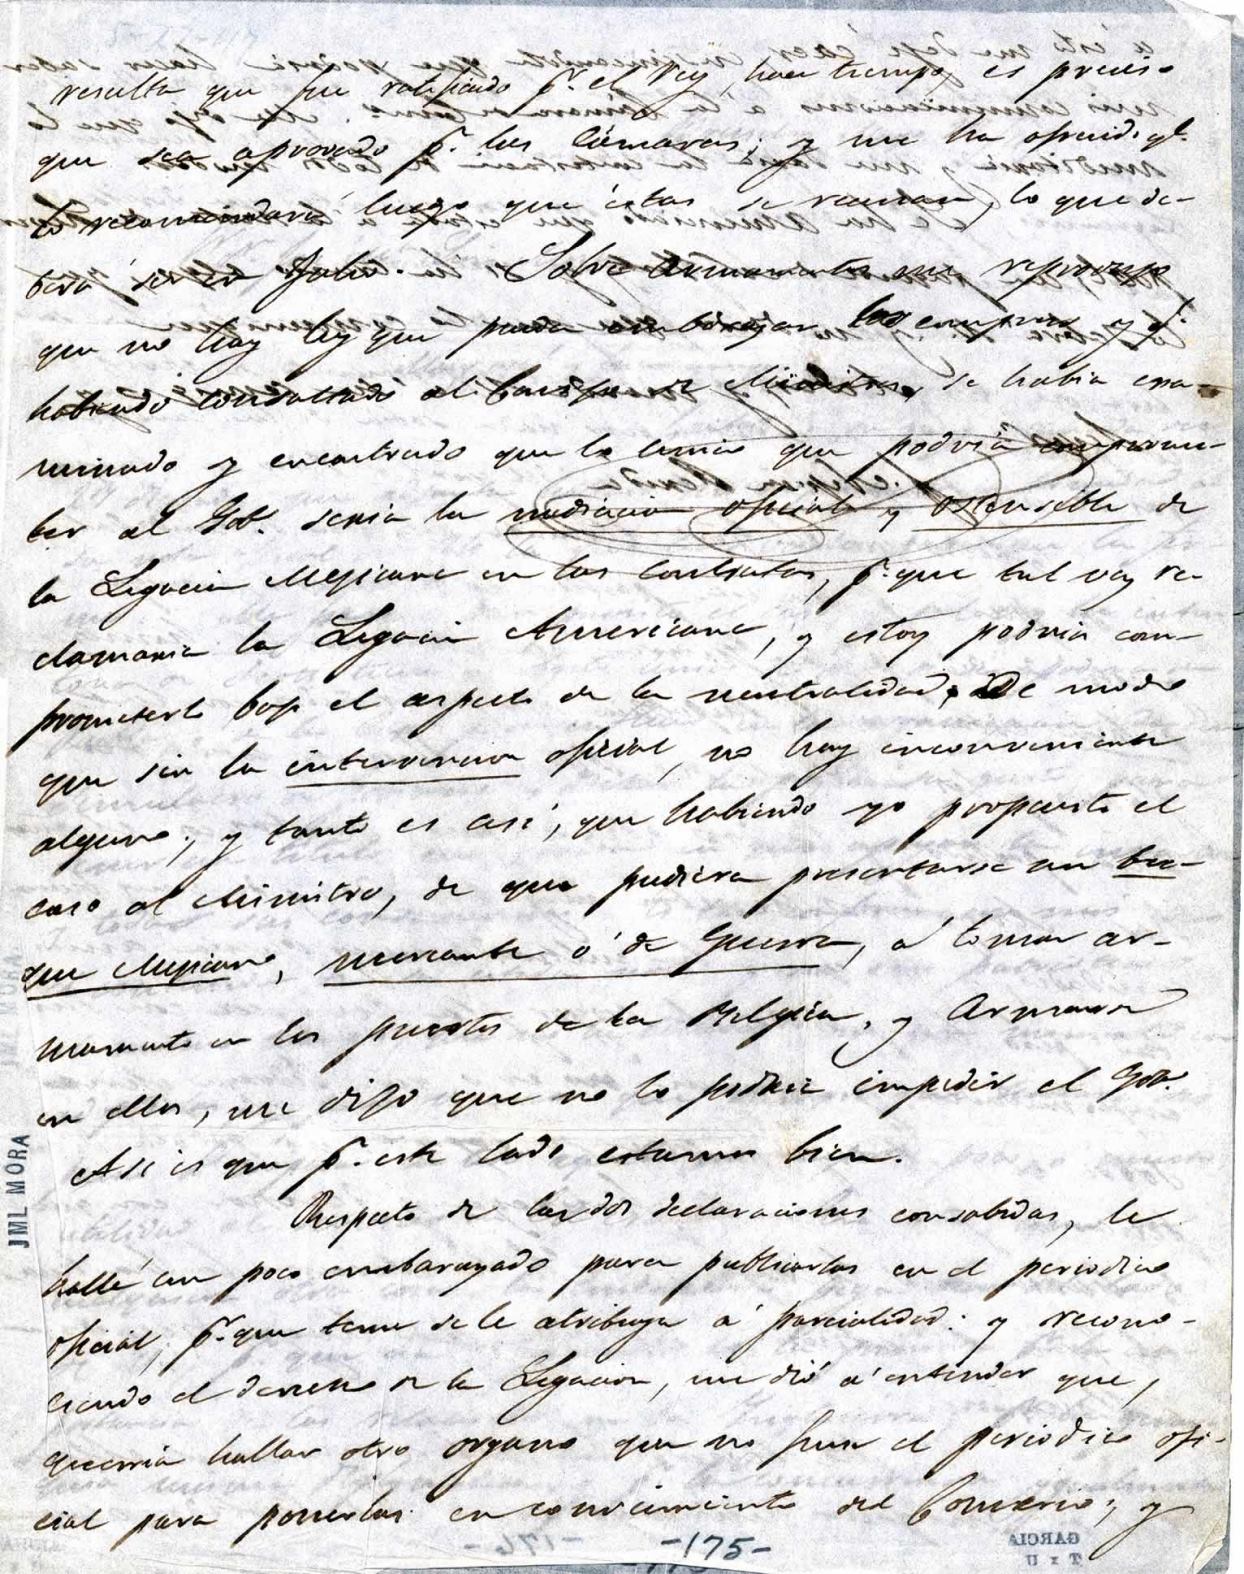 resulta que fue ratificado p.r el Rey, hace tiempo, es preciso
que sea aprovado p.r las Cámaras; y me ha ofrecido q.e
lo recomendará luego que éstas se reunan, lo que de-
berá ser en Julio. Sobre armamentos me
que no hay ley que pueda embarazar las compras y q.e
habiendo consultado al Consejo de Ministros, se habia exa-
minado y encontrado que lo unico que podria comprome-
ter al Gob.o seria la mediacion oficial y ostensible de
la Legacion Mejicana en los contratos, p.r que tal vez re-
clamaria la Legacion Americana, y estos podria com-
prometerlo bajo el aspecto de la neutralidad. De modo
que sin la intervencion oficial, no hay inconveniente
alguno; y tanto es asi, que habiendo yo propuesto el
caso al Ministro, de que pudiera presentarse un bu-
que Mejicano, mercante ó de Guerra, á tomar ar-
mamento en los puertos de la Belgica, y Armarse
en ellos, me dijo que no lo podria impedir el Gob.o
Asi es que p.r este lado estamos bien.
Respecto de las dos declaraciones consabidas, le
hallé un poco embarazado para publicarlas en el periodico
oficial, p.r que teme se le atribuya á parcialidad: y recono-
ciendo el derecho de la Legacion, me dió á entender que,
querria hallar otro organo que no fuera el periodico ofi-
cial para ponerlas en conocimiento del Comercio; y
-175-
JML MORA
GARCIA